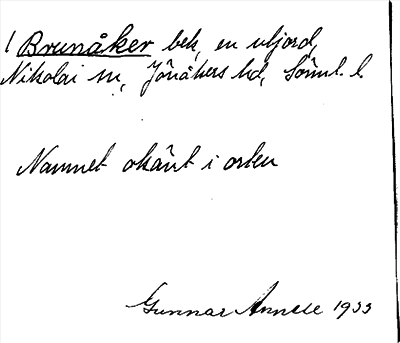 ( Brunåker bek, en utjord,
Nikolai sn, Jönåkers hd, Söml. l
Namnet okänt i orten
Gunnar 1933